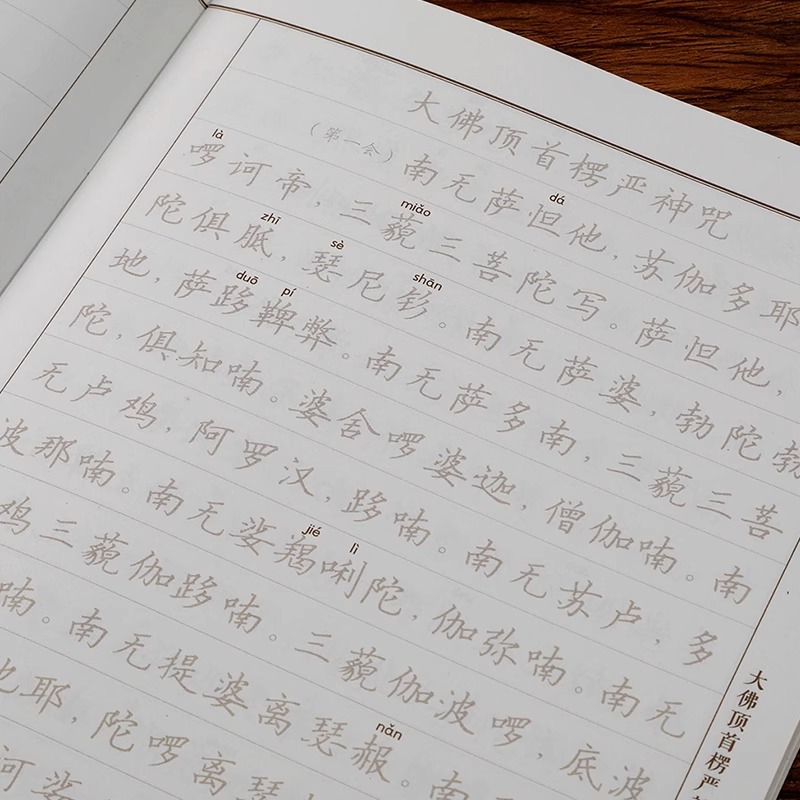 大佛顶首楞严神咒
dá
（第一会）南无萨怛他，苏伽多耶
là miǎo
啰诃帝，三藐三菩陀写。萨怛他，
zhī sè shān
陀俱胝，瑟尼钐。南无萨婆，勃陀勃
duō pí
地，萨跢鞞弊。南无萨多南，三藐三菩
陀，俱知喃。娑舍啰婆迦，僧伽喃。南
无卢鸡，阿罗汉，跢喃。南无苏卢，多
jié lì
波那喃。南无娑羯唎陀，伽弥喃。南无
鸡三藐伽跢喃。三藐伽波啰，底波
nǎn
喃。南无提婆离瑟赧。南
也耶，陀啰离瑟
诃娑
大佛顶首楞严